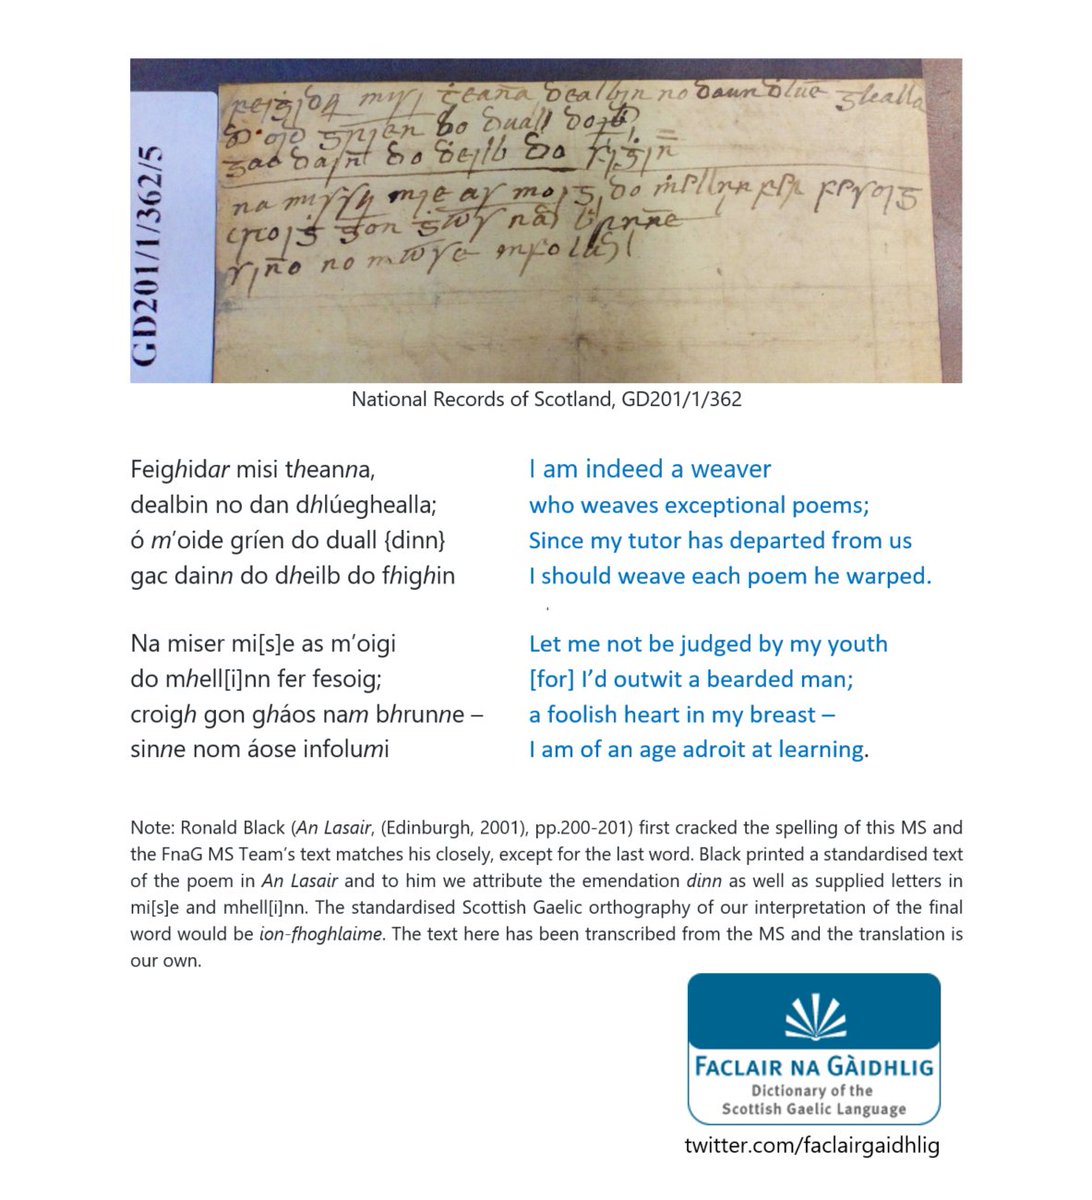 GD201/1/362/5
National Records of Scotland, GD201/1/362
Feighidar misi theanna,
dealbin no dan dhlúeghealla;
ó m’oide gríen do duall {dinn}
gac dainn do dheilb do fhighin
Na miser mi[s]e as m’oigi
do mhell[i]nn fer fesoig;
croigh gon gháos nam bhrunne –
sinne nom áose infolumi
I am indeed a weaver
who weaves exceptional poems;
Since my tutor has departed from us
I should weave each poem he warped.
Let me not be judged by my youth
[for] I’d outwit a bearded man;
a foolish heart in my breast –
I am of an age adroit at learning.
Note: Ronald Black (An Lasair, (Edinburgh, 2001), pp.200-201) first cracked the spelling of this MS and
the FnaG MS Team’s text matches his closely, except for the last word. Black printed a standardised text
of the poem in An Lasair and to him we attribute the emendation dinn as well as supplied letters in
mi[s]e and mhell[i]nn. The standardised Scottish Gaelic orthography of our interpretation of the final
word would be ion-fhoghlaime. The text here has been transcribed from the MS and the translation is
our own.
FACLAIR NA GÀIDHLIG
Dictionary of the
Scottish Gaelic Language
twitter.com/faclairgaidhlig